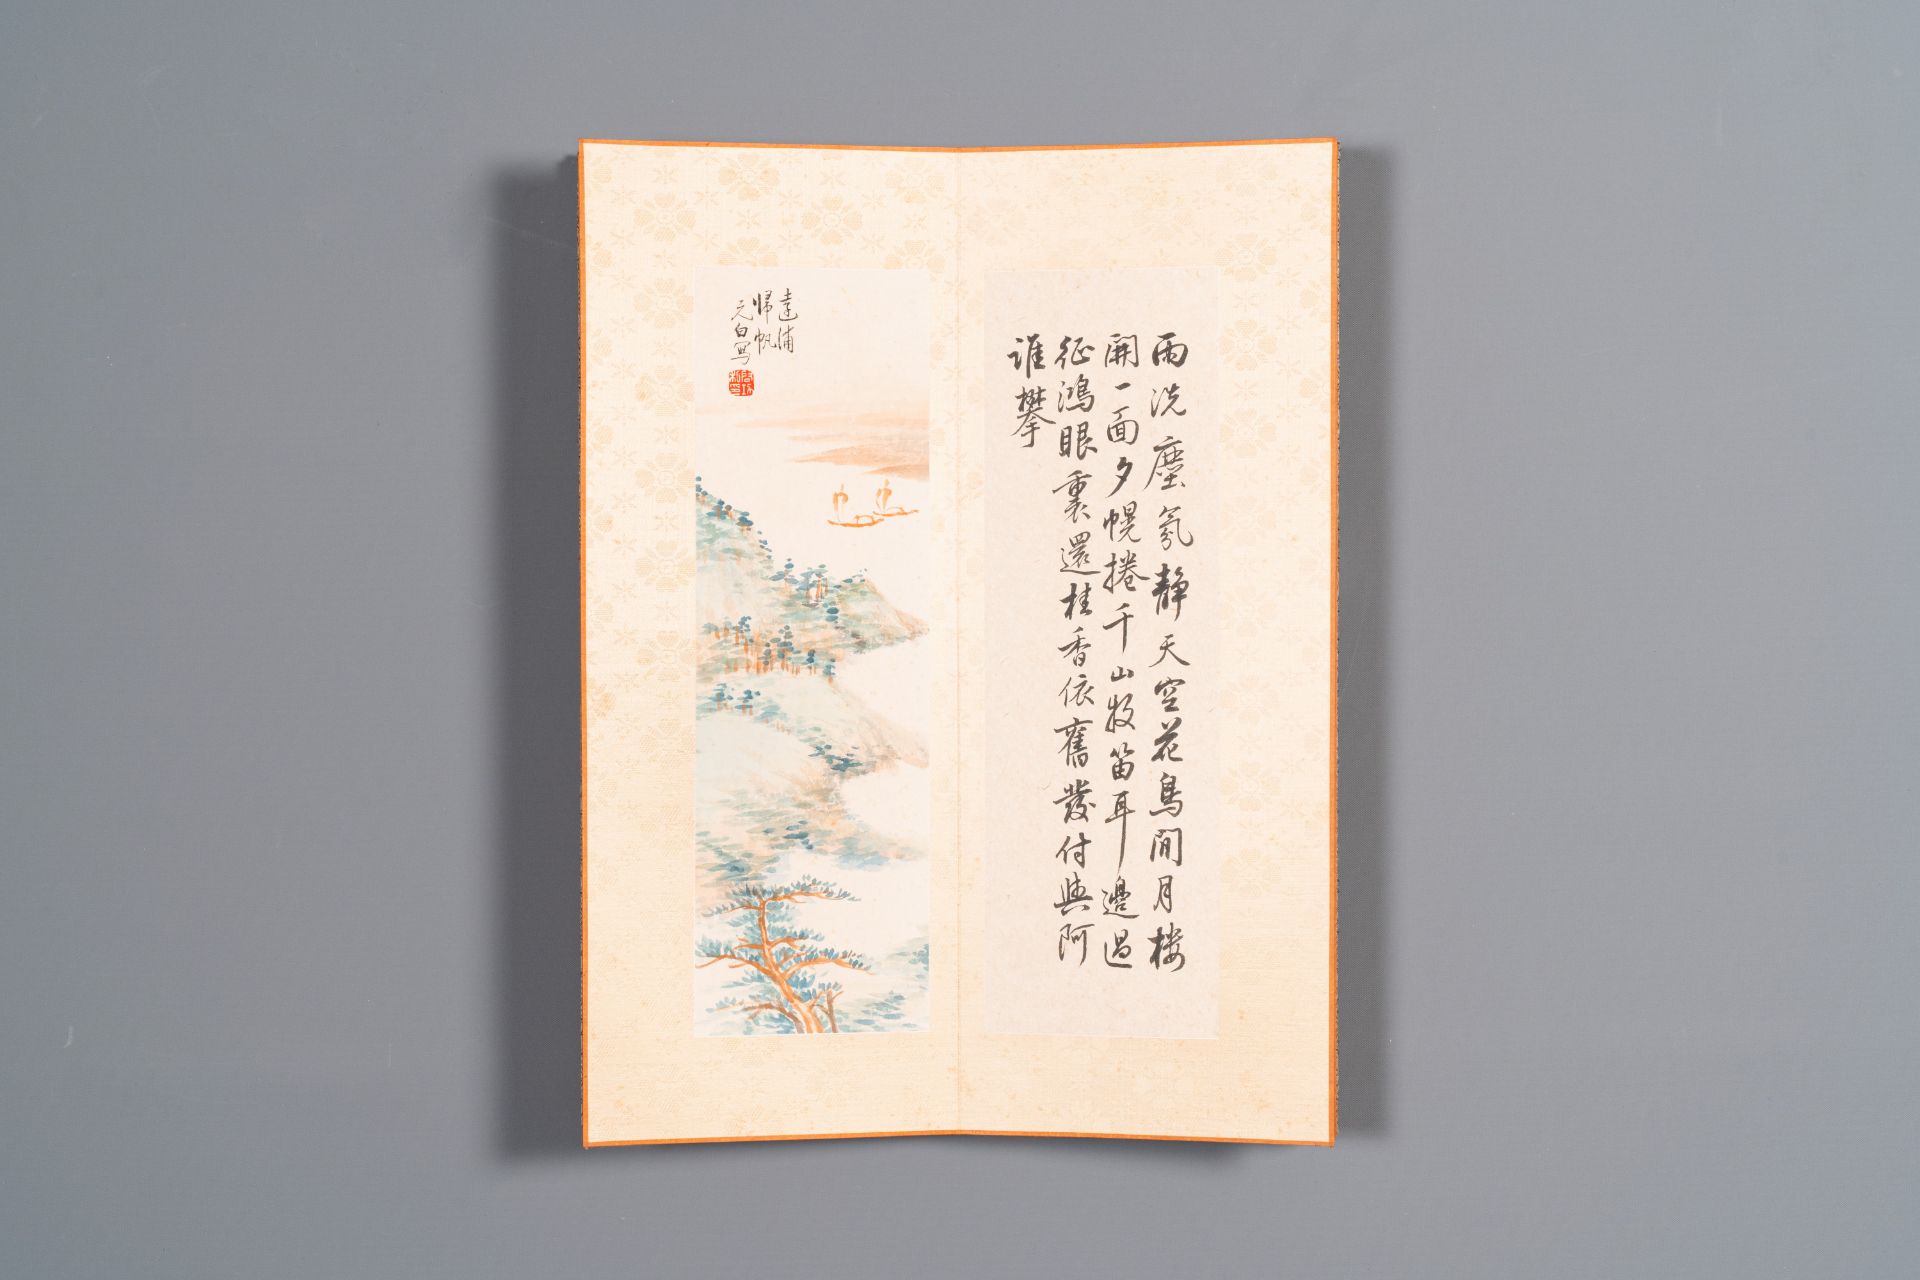 雨洗塵氛靜天空花鳥閒月楼
開一面夕幌捲千山牧笛耳邊過
征鴻眼裏還桂香依舊發付與阿
誰攀
遠浦
歸帆
元白寫